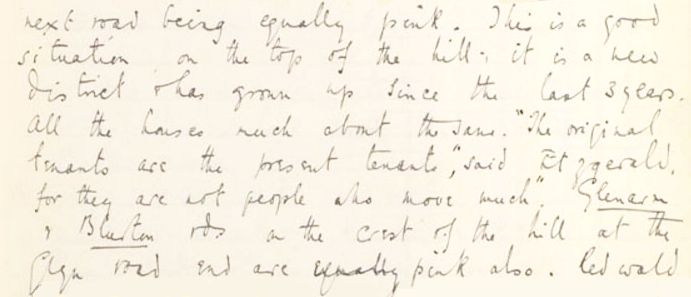 next road being equally pink. This is a good
situation, on the top of the hill; it is a new
district & has grown up since the last 3 years.
All the houses much about the same. "The original
tenants are the present tenants", said Fitzgerald,
for they are not people who move much". Glenarm
& Blurton rds on the crest of the hill at the
Glyn road end are equally pink also. Redwald